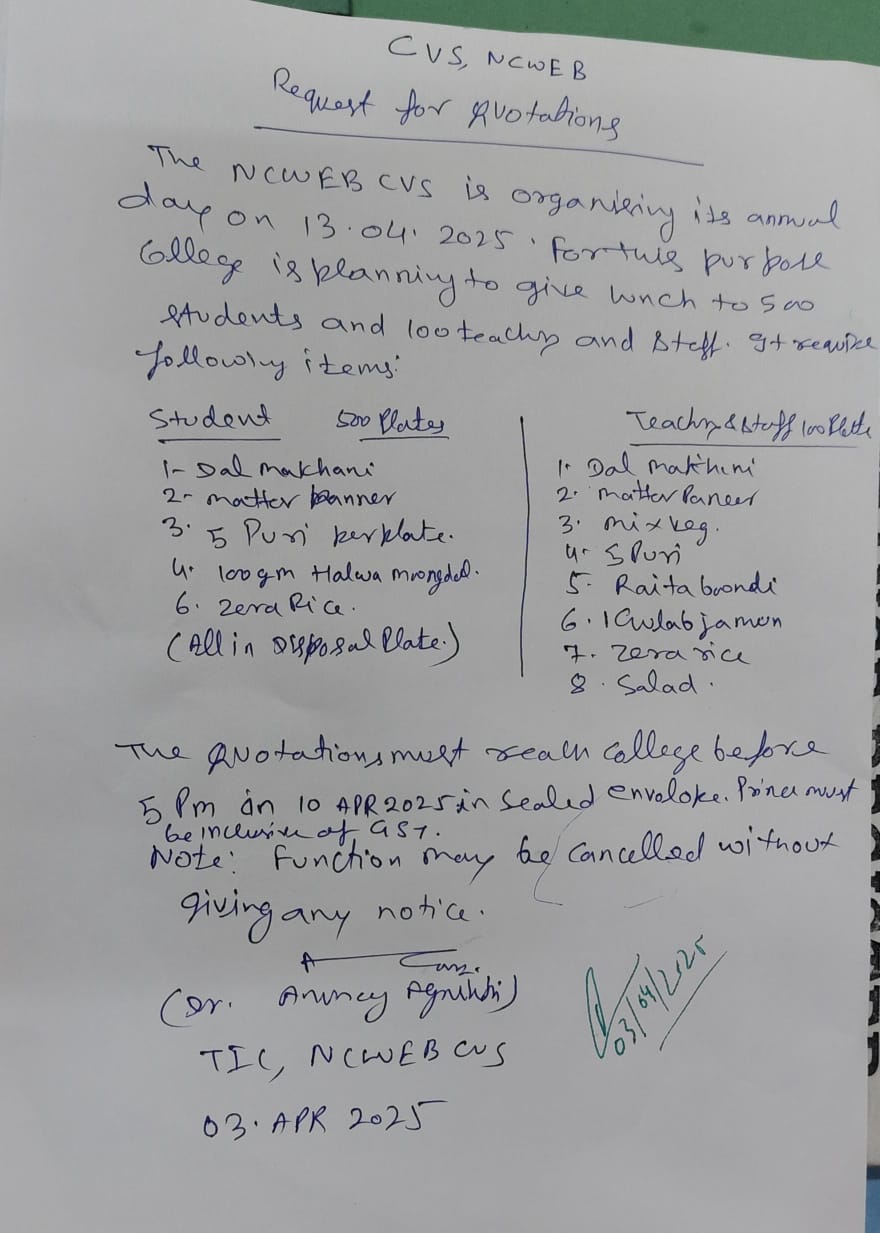 CVS, NCWEB
Request for Quotations
The NCWEB CVS is organising its annual
day on 13.04.2025. For this purpose
College is planning to give lunch to 500
students and 100 teachers and staff. It require
following items:
Student 500 Plates
1- Dal makhani
2- matter panner
3. 5 Puri per plate.
4. 100 gm Halwa moongdal.
6. Zera Rice.
(All in Disposal Plate.)
Teachers & staff 100 Plate
1. Dal makhini
2. matter Paneer
3. mix veg.
4. 5 Puri
5. Raita boondi
6. 1 Gulab jamon
7. Zera rice
8. Salad.
The Quotations must reach college before
5 Pm on 10 APR 2025 in Sealed envelope. Prices must
be inclusive of GST.
Note: Function may be cancelled without
giving any notice.
(Dr.
TIC, NCWEB CVS
03. APR 2025
03/04/2025